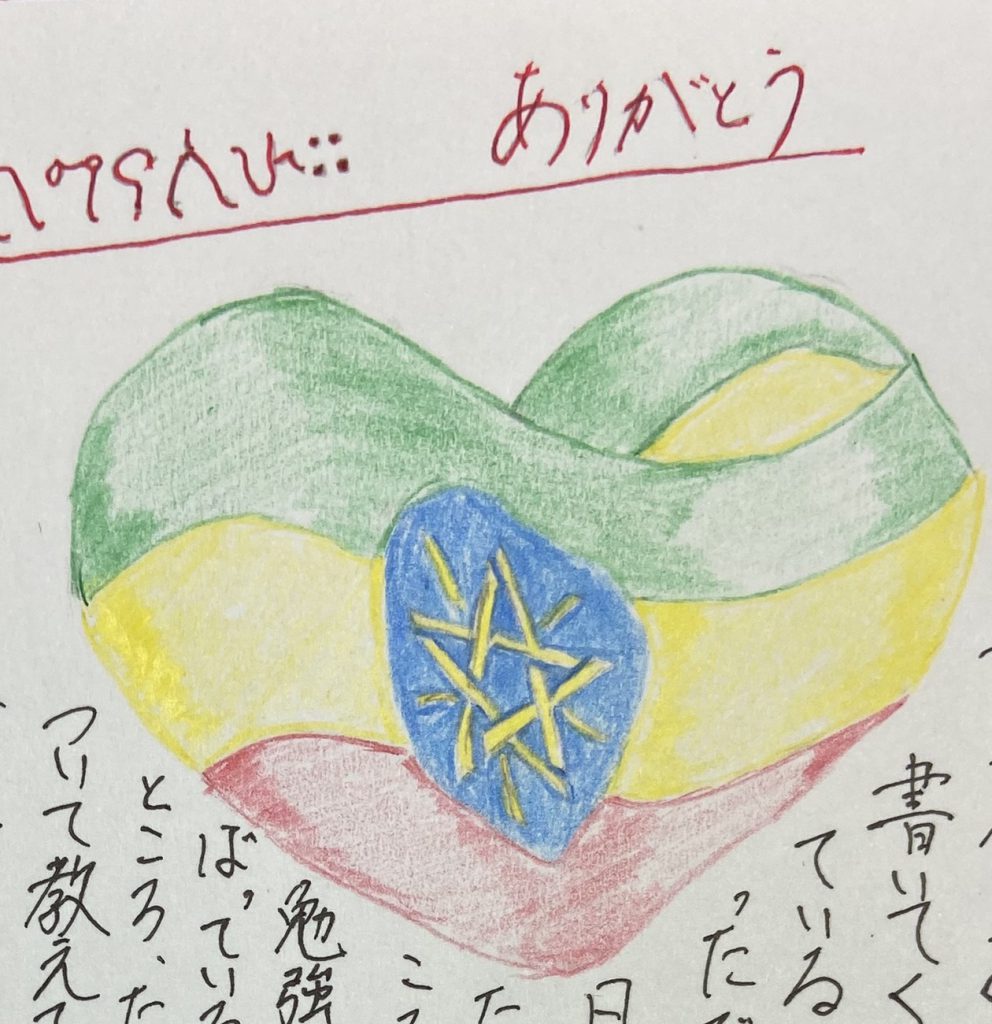 ግናለሁ:: ありがとう
書いてく
ている
っただ
日
た
こ
勉強
ばっている
ところ、た
ついて教えて